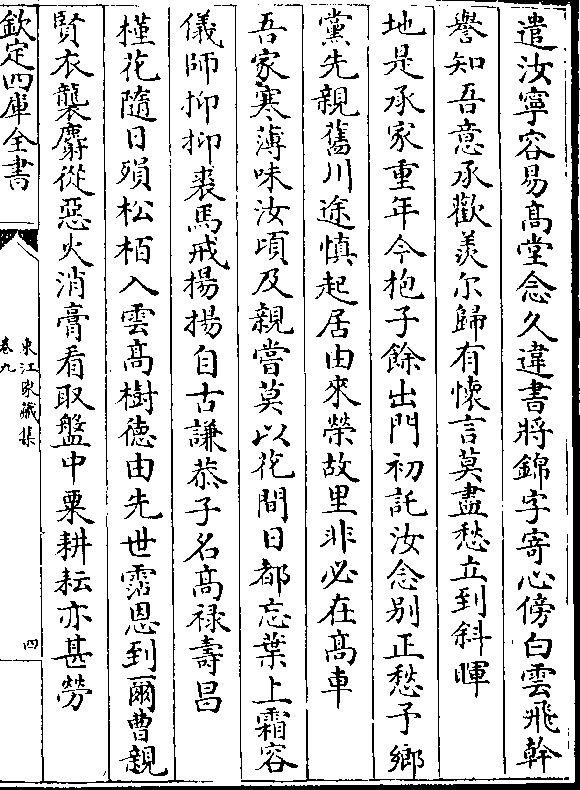 遣汝寧容易髙堂念久違書將錦字寄心傍白雲飛幹
譽知吾意承歡羨尔歸有懐言莫盡愁立到斜暉
地是承家重年今抱子餘出門初託汝念别正愁予鄉
黨先親舊川途慎起居由來榮故里非必在髙車
吾家寒薄味汝頃及親嘗莫以花間日都忘葉上霜容
儀師抑抑裘馬戒揚揚自古謙恭子名髙禄壽昌
槿花隨日殞松栢入雲髙樹徳由先世霑恩到爾曹親
賢衣襲麝從惡火消膏看取盤中粟耕耘亦甚勞
欽定四庫全書
東江家藏集
卷九
四